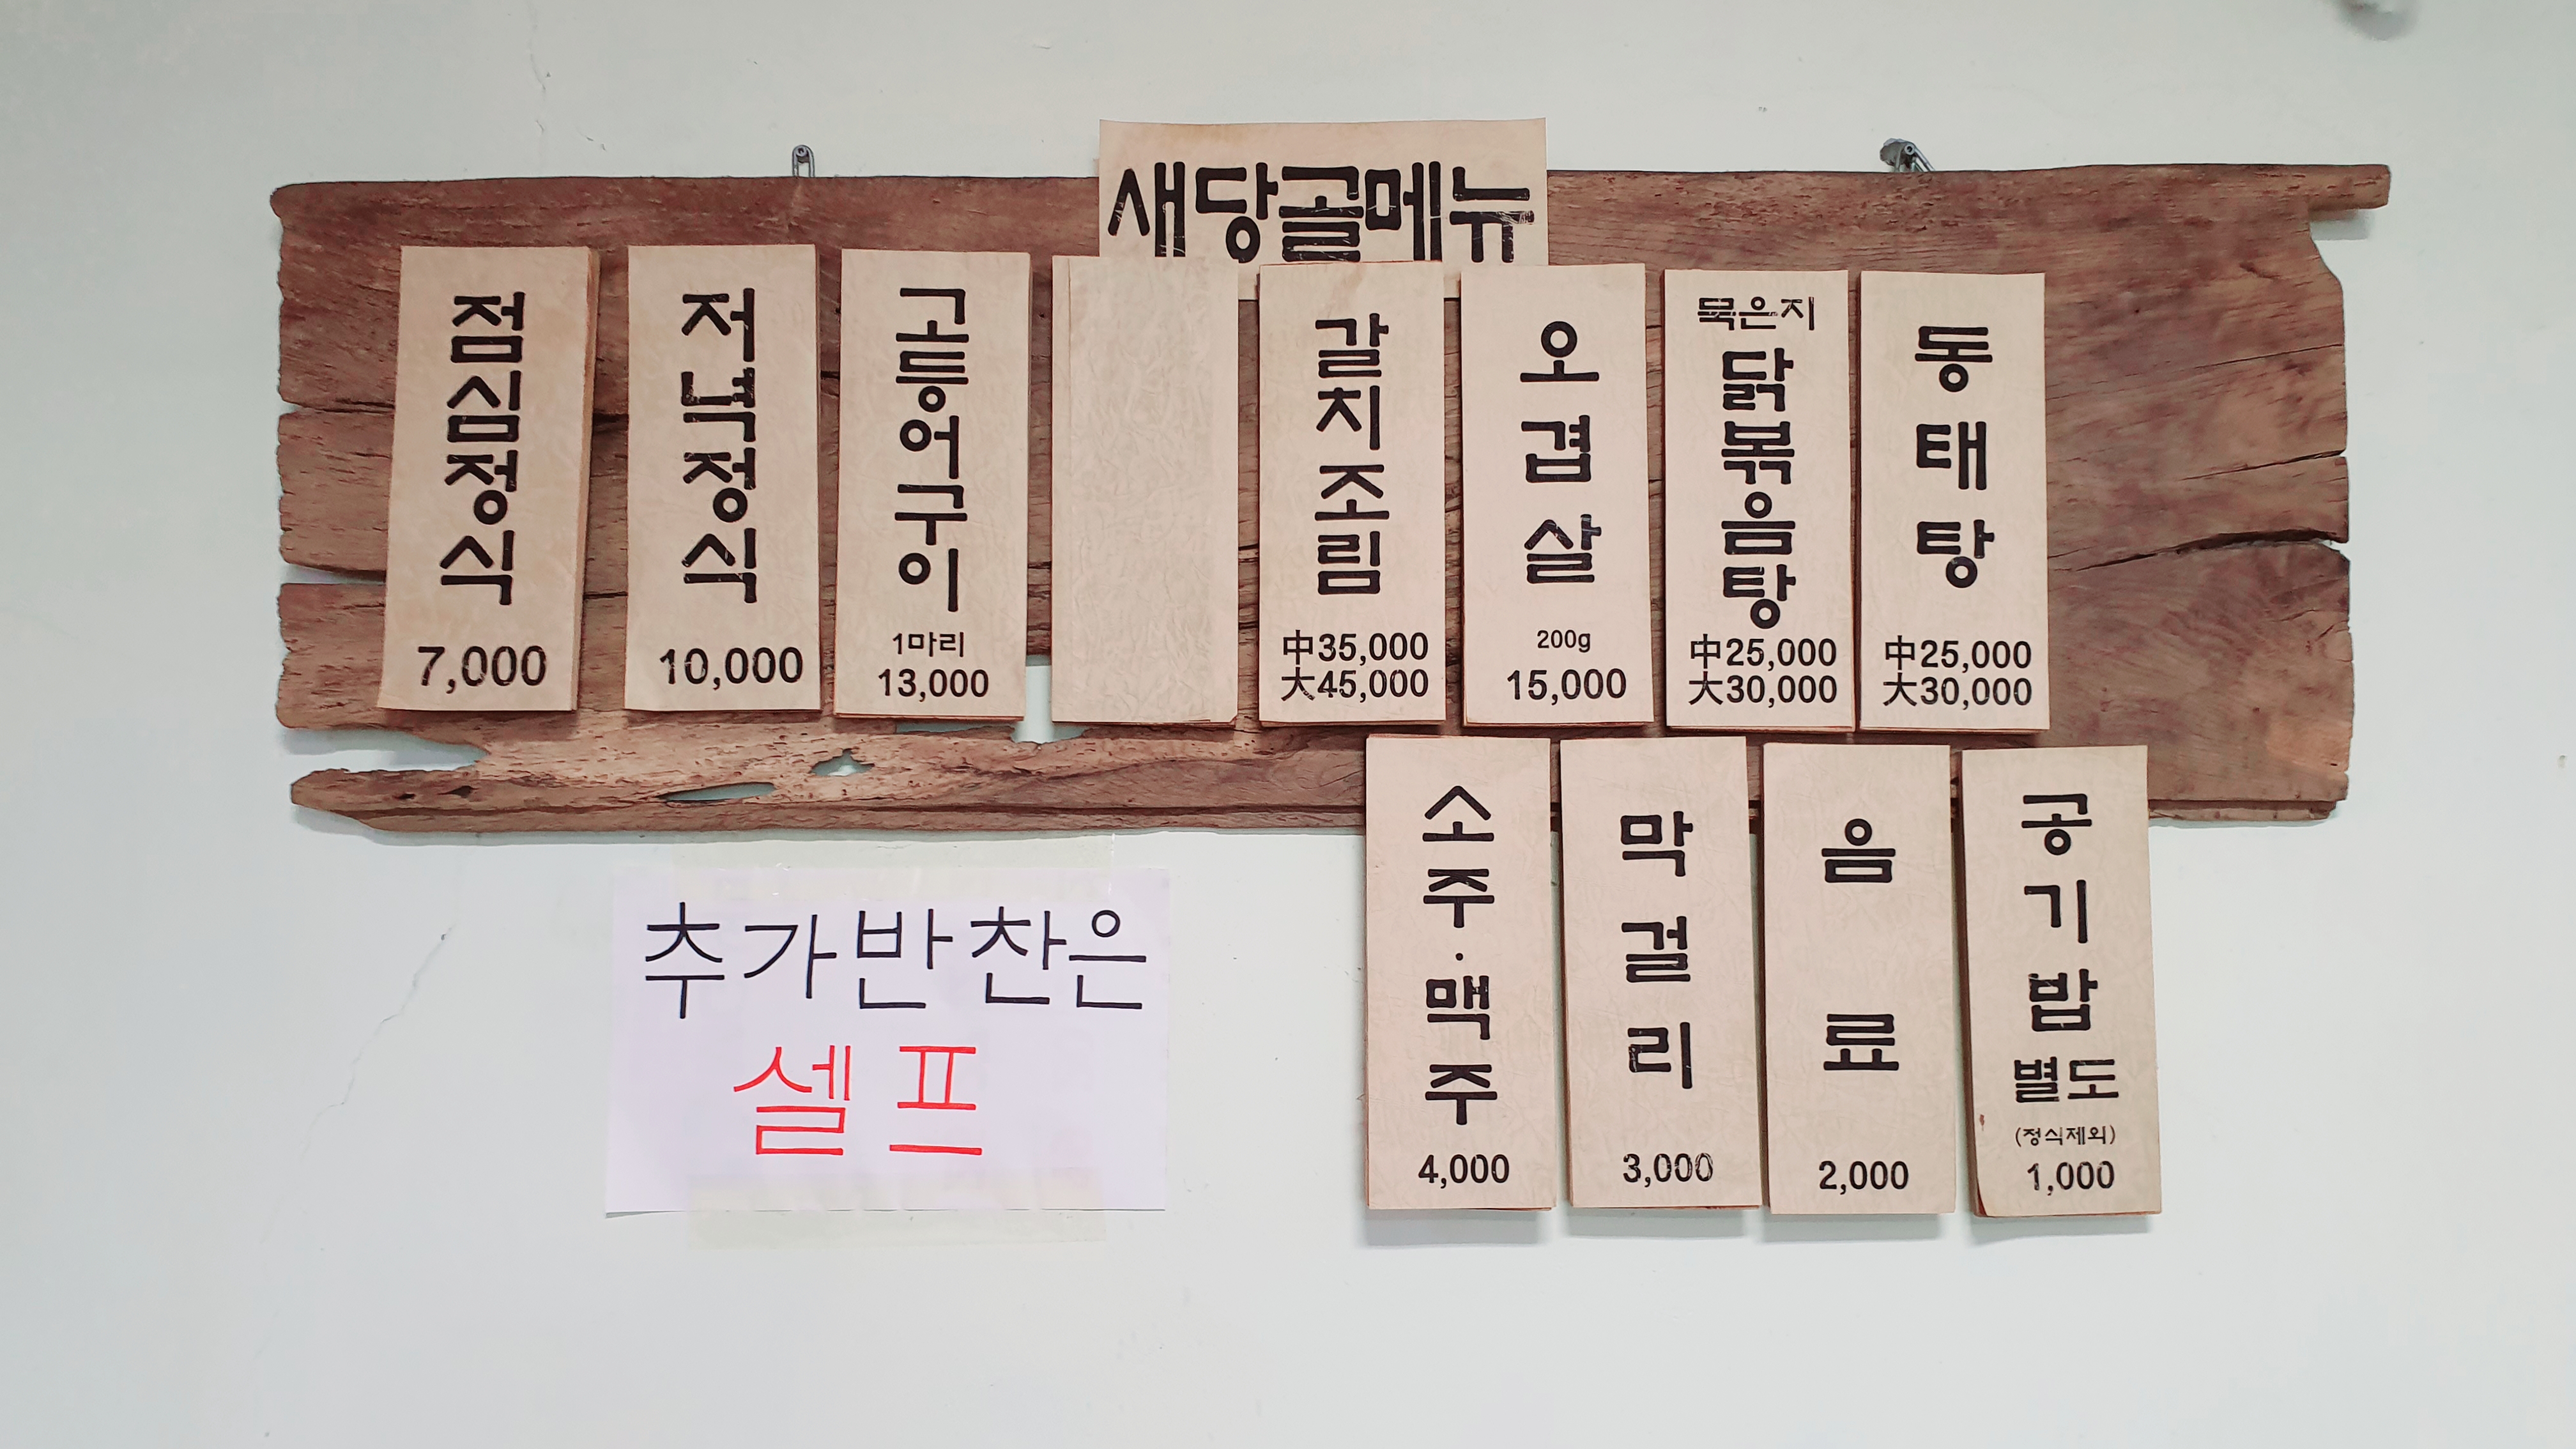 새당골메뉴
점심정식
7,000
저녁정식
10,000
고등어구이
1마리
13,000
갈치조림
中35,000
大45,000
오겹살
200g
15,000
묵은지
닭볶음탕
中25,000
大30,000
동태탕
中25,000
大30,000
소주·맥주
4,000
막걸리
3,000
음료
2,000
공기밥
별도
(정식제외)
1,000
추가반찬은
셀프